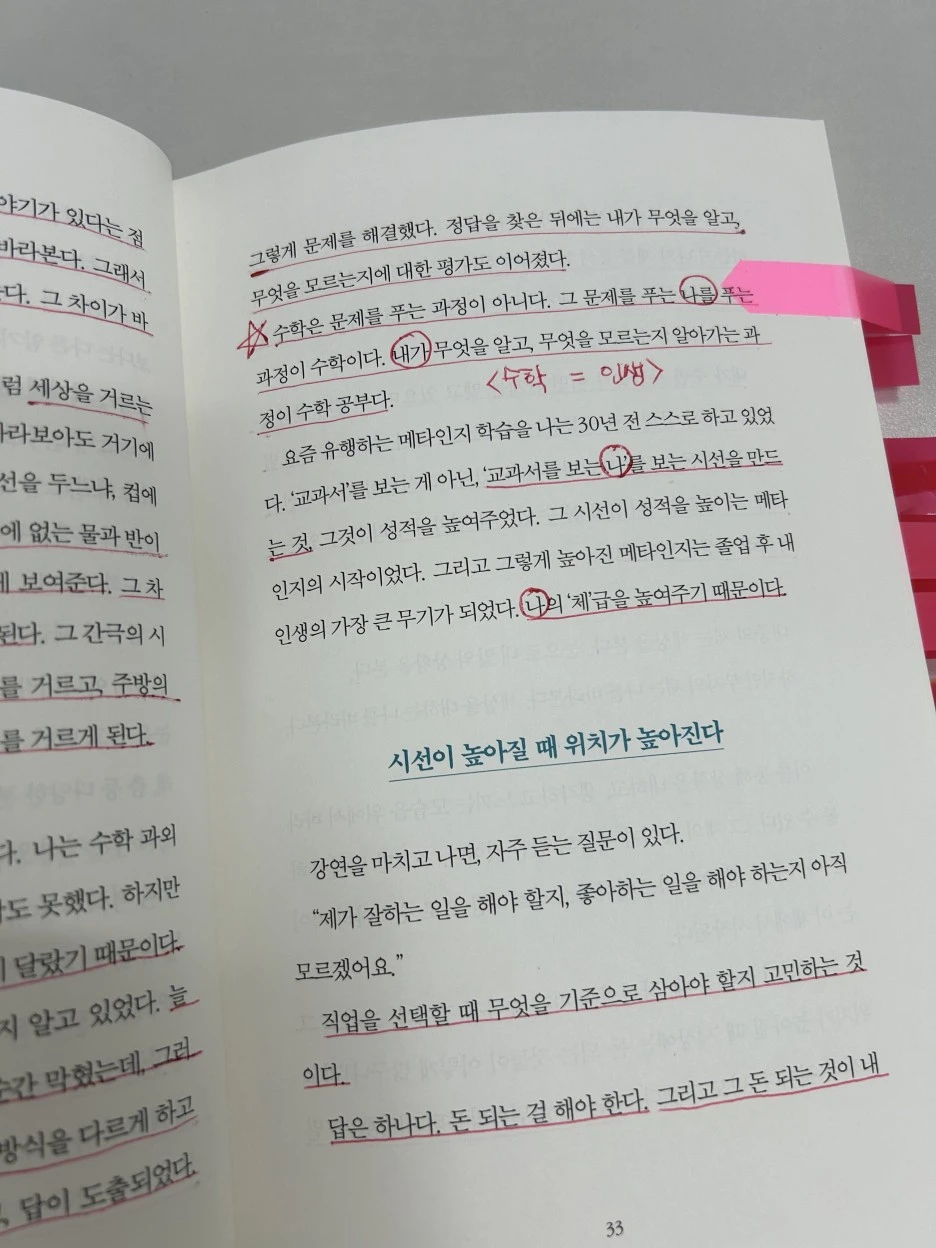 야기가 있다는 점
바라본다. 그래서
그 차이가 바
세상을 거르는
라보아도 거기에
선을 두느냐, 컵에
에 없는 물과 반이
보여준다. 그 차
된다. 그 간극의 시
를 거르고, 주방의
를 거르게 된다.
나는 수학 과외
도 못했다. 하지만
달랐기 때문이다.
지 알고 있었다. 늘
순간 막혔는데, 그러
방식을 다르게 하고
답이 도출되었다.
그렇게 문제를 해결했다. 정답을 찾은 뒤에는 내가 무엇을 알고,
무엇을 모르는지에 대한 평가도 이어졌다.
수학은 문제를 푸는 과정이 아니다. 그 문제를 푸는 나를 푸는
과정이 수학이다. 내가 무엇을 알고, 무엇을 모르는지 알아가는 과
<수학 = 인생>
정이 수학 공부다.
요즘 유행하는 메타인지 학습을 나는 30년 전 스스로 하고 있었
다. ‘교과서’를 보는 게 아닌, ‘교과서를 보는 나’를 보는 시선을 만드
는 것, 그것이 성적을 높여주었다. 그 시선이 성적을 높이는 메타
인지의 시작이었다. 그리고 그렇게 높아진 메타인지는 졸업 후 내
인생의 가장 큰 무기가 되었다. 나의 ‘체’급을 높여주기 때문이다.
시선이 높아질 때 위치가 높아진다
강연을 마치고 나면, 자주 듣는 질문이 있다.
“제가 잘하는 일을 해야 할지, 좋아하는 일을 해야 하는지 아직
모르겠어요.”
직업을 선택할 때 무엇을 기준으로 삼아야 할지 고민하는 것
이다.
답은 하나다. 돈 되는 걸 해야 한다. 그리고 그 돈 되는 것이 내
33